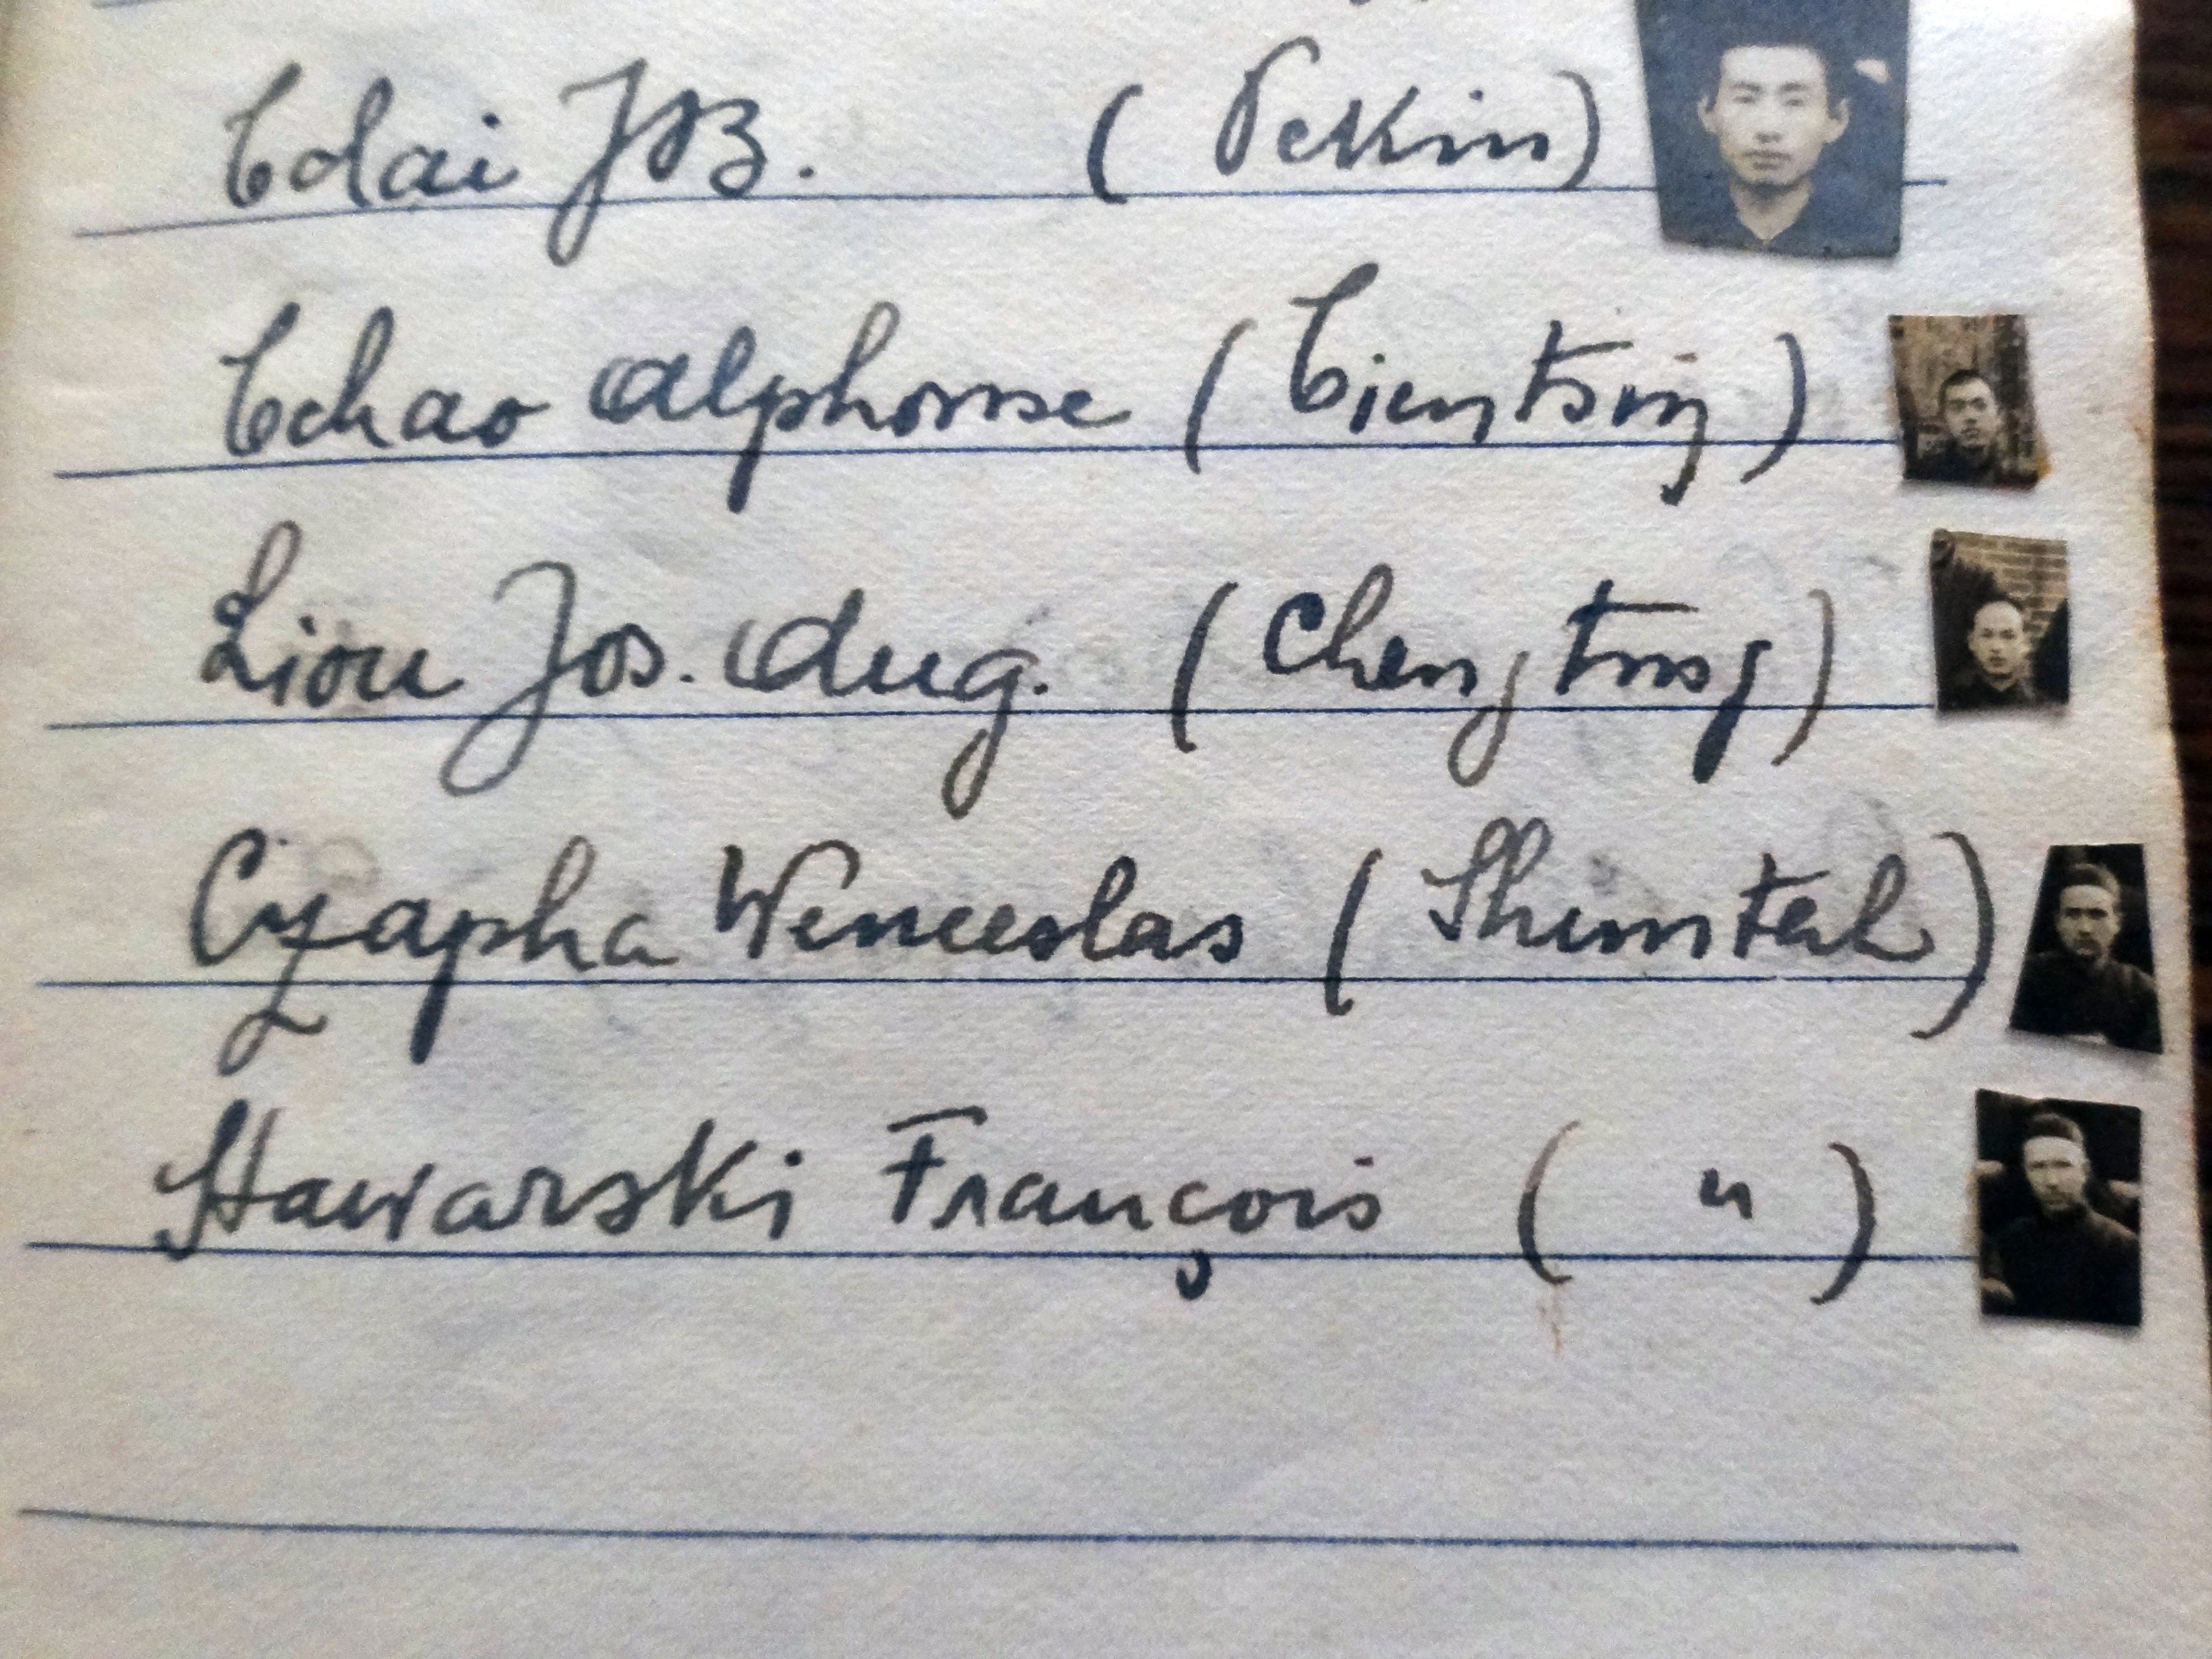 Tchao Alphonse (Tientsing)
Liou Jos. Aug. (Chengting)
Czapha Wenceslas (Shunteh)
Stawarski François ( " )